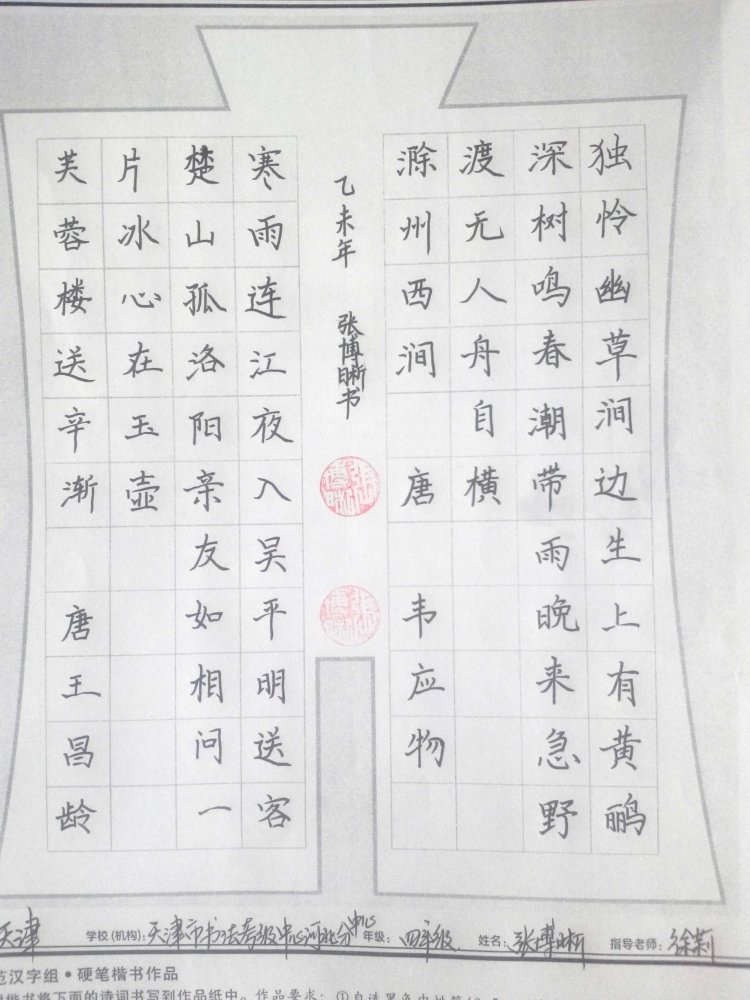 独怜幽草涧边生上有黄鹂
深树鸣春潮带雨晚来急野
渡无人舟自横
滁州西涧 唐 韦应物
乙未年 张博晰书
寒雨连江夜入吴平明送客
楚山孤洛阳亲友如相问一
片冰心在玉壶
芙蓉楼送辛渐 唐 王昌龄
天津 学校(机构):天津市书法考级中心河北分中心 年级:四年级 姓名:张博晰 指导老师:徐莉
范汉字组•硬笔楷书作品
楷书将下面的诗词书写到作品纸中。作品要求:①自选黑色